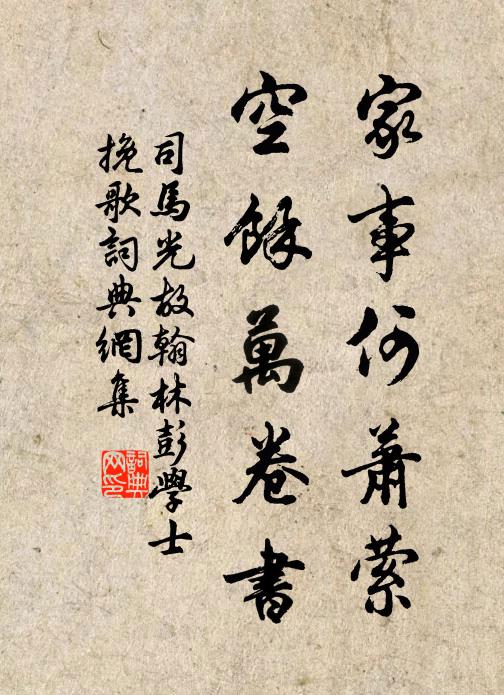 家事何蕭索
空餘萬卷書
司馬光故翰林彭學士
挽歌詞典網集
詞典
网印